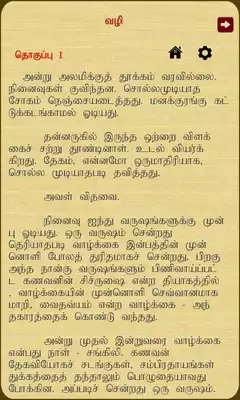 வழி
தொகுப்பு 1
அன்று அலமிக்குத் தூக்கம் வரவில்லை.
நினைவுகள் குவிந்தன. சொல்லமுடியாத
சோகம் நெஞ்சையடைத்தது. மனக்குரங்கு கட்
டுக்கடங்காமல் ஓடியது.
தன்னருகில் இருந்த ஒற்றை விளக்
கைச் சற்று தூண்டினாள். உடல் வியர்க்
கிறது. தேகம், என்னமோ ஒருமாதிரியாக,
சொல்ல முடியாதபடி தவித்தது.
அவள் விதவை.
நினைவு ஐந்து வருஷங்களுக்கு முன்
பு ஓடியது. ஒரு வருஷம் சென்றது
தெரியாதபடி வாழ்க்கை இன்பத்தின் முன்
னொளி போலத் துரிதமாகச் சென்றது. பிறகு
அந்த நான்கு வருஷங்களும் பிணிவாய்ப்பட்
ட கணவனின் சிச்ருஷை என்ற தியாகத்தில்
, வாழ்க்கையின் முன்னொளி செவ்வானமாக
மாறி, வைதவ்யம் என்ற வாழ்க்கை - அந்
தகாரத்தைக் கொண்டு வந்தது.
அன்று முதல் இன்றுவரை வாழ்க்கை
என்பது நாள் - சங்கிலி. கணவன்
தேகவியோகச் சடங்குகள், சம்பிரதாயங்கள்
துக்கத்தைத் தந்தாலும் பொழுதையாவது
போக்கின. அப்படிச் சென்றது ஒரு வருஷம்.